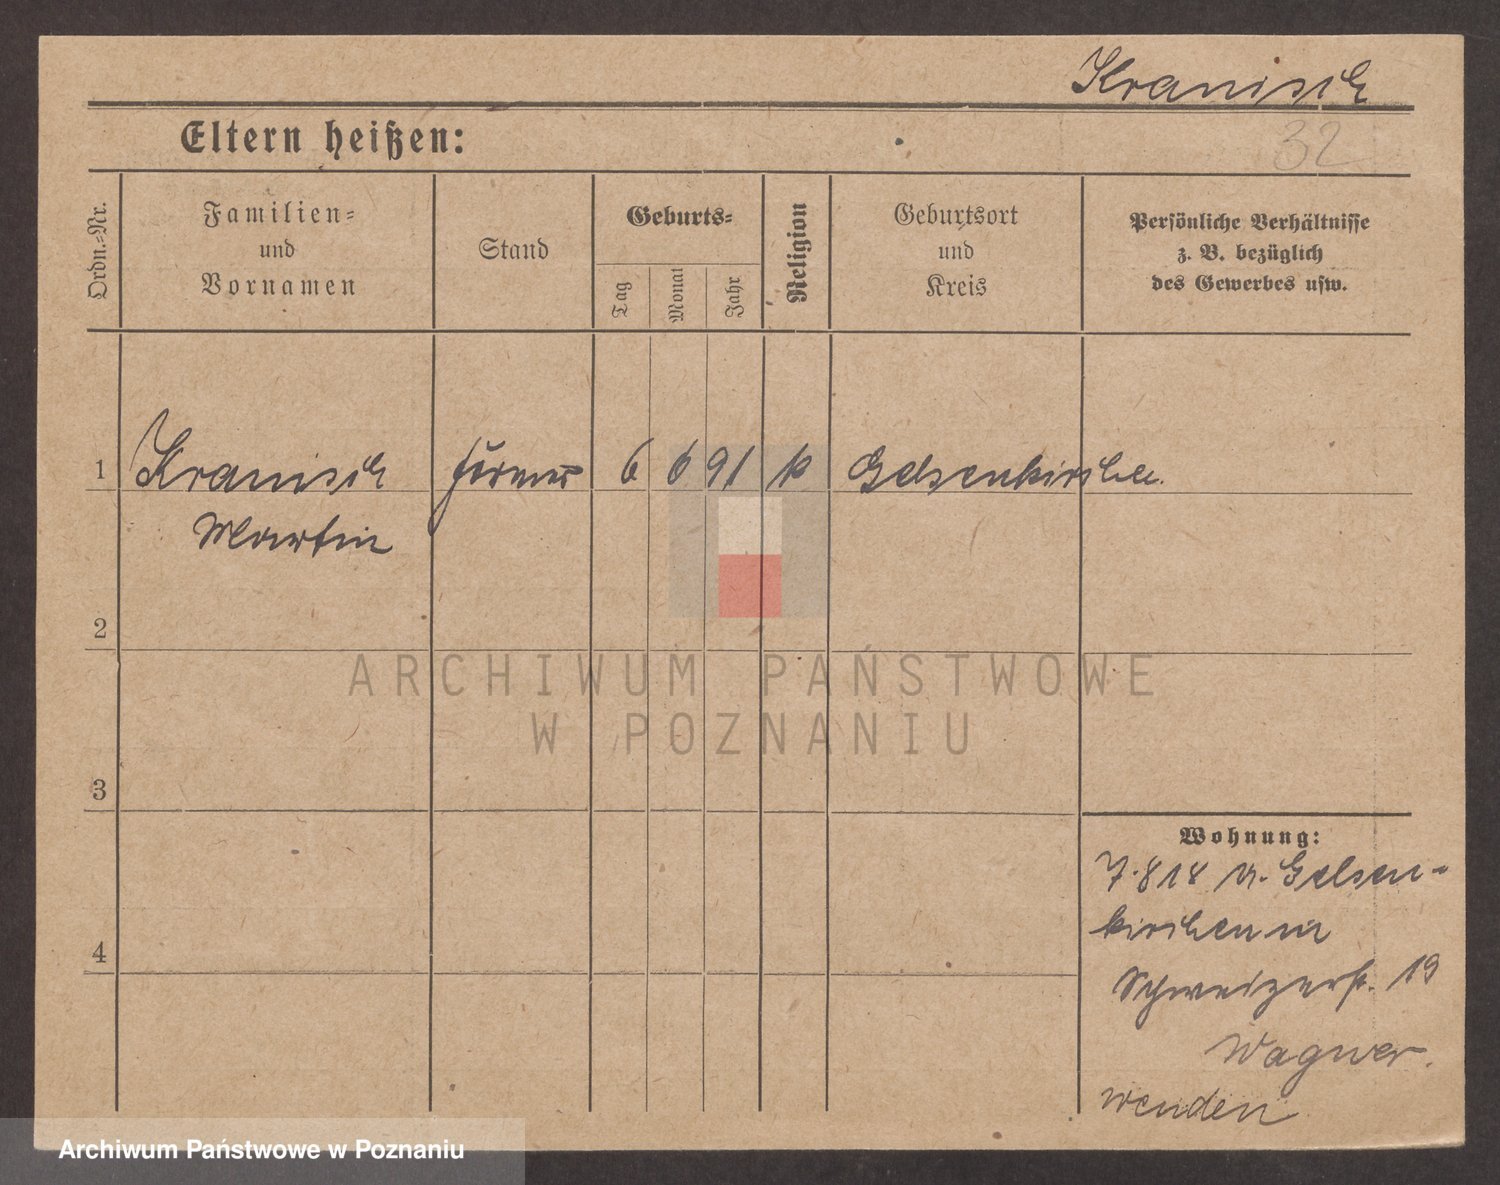 Kranisch
Eltern heißen:
32
Ordn.=Nr.
Familien=
und
Vornamen
Stand
Geburts=
Tag
Monat
Jahr
Religion
Geburtsort
und
Kreis
Persönliche Verhältnisse
z. B. bezüglich
des Gewerbes usw.
1 Kranisch Former 6 6 91 k Gelsenkirchen.
Martin
2
ARCHIWUM PAŃSTWOWE
W POZNANIU
3
Wohnung:
7.818 v. Gelsen-
kirchen in
Schweizerst. 19
Wagner
4
wenden
Archiwum Państwowe w Poznaniu